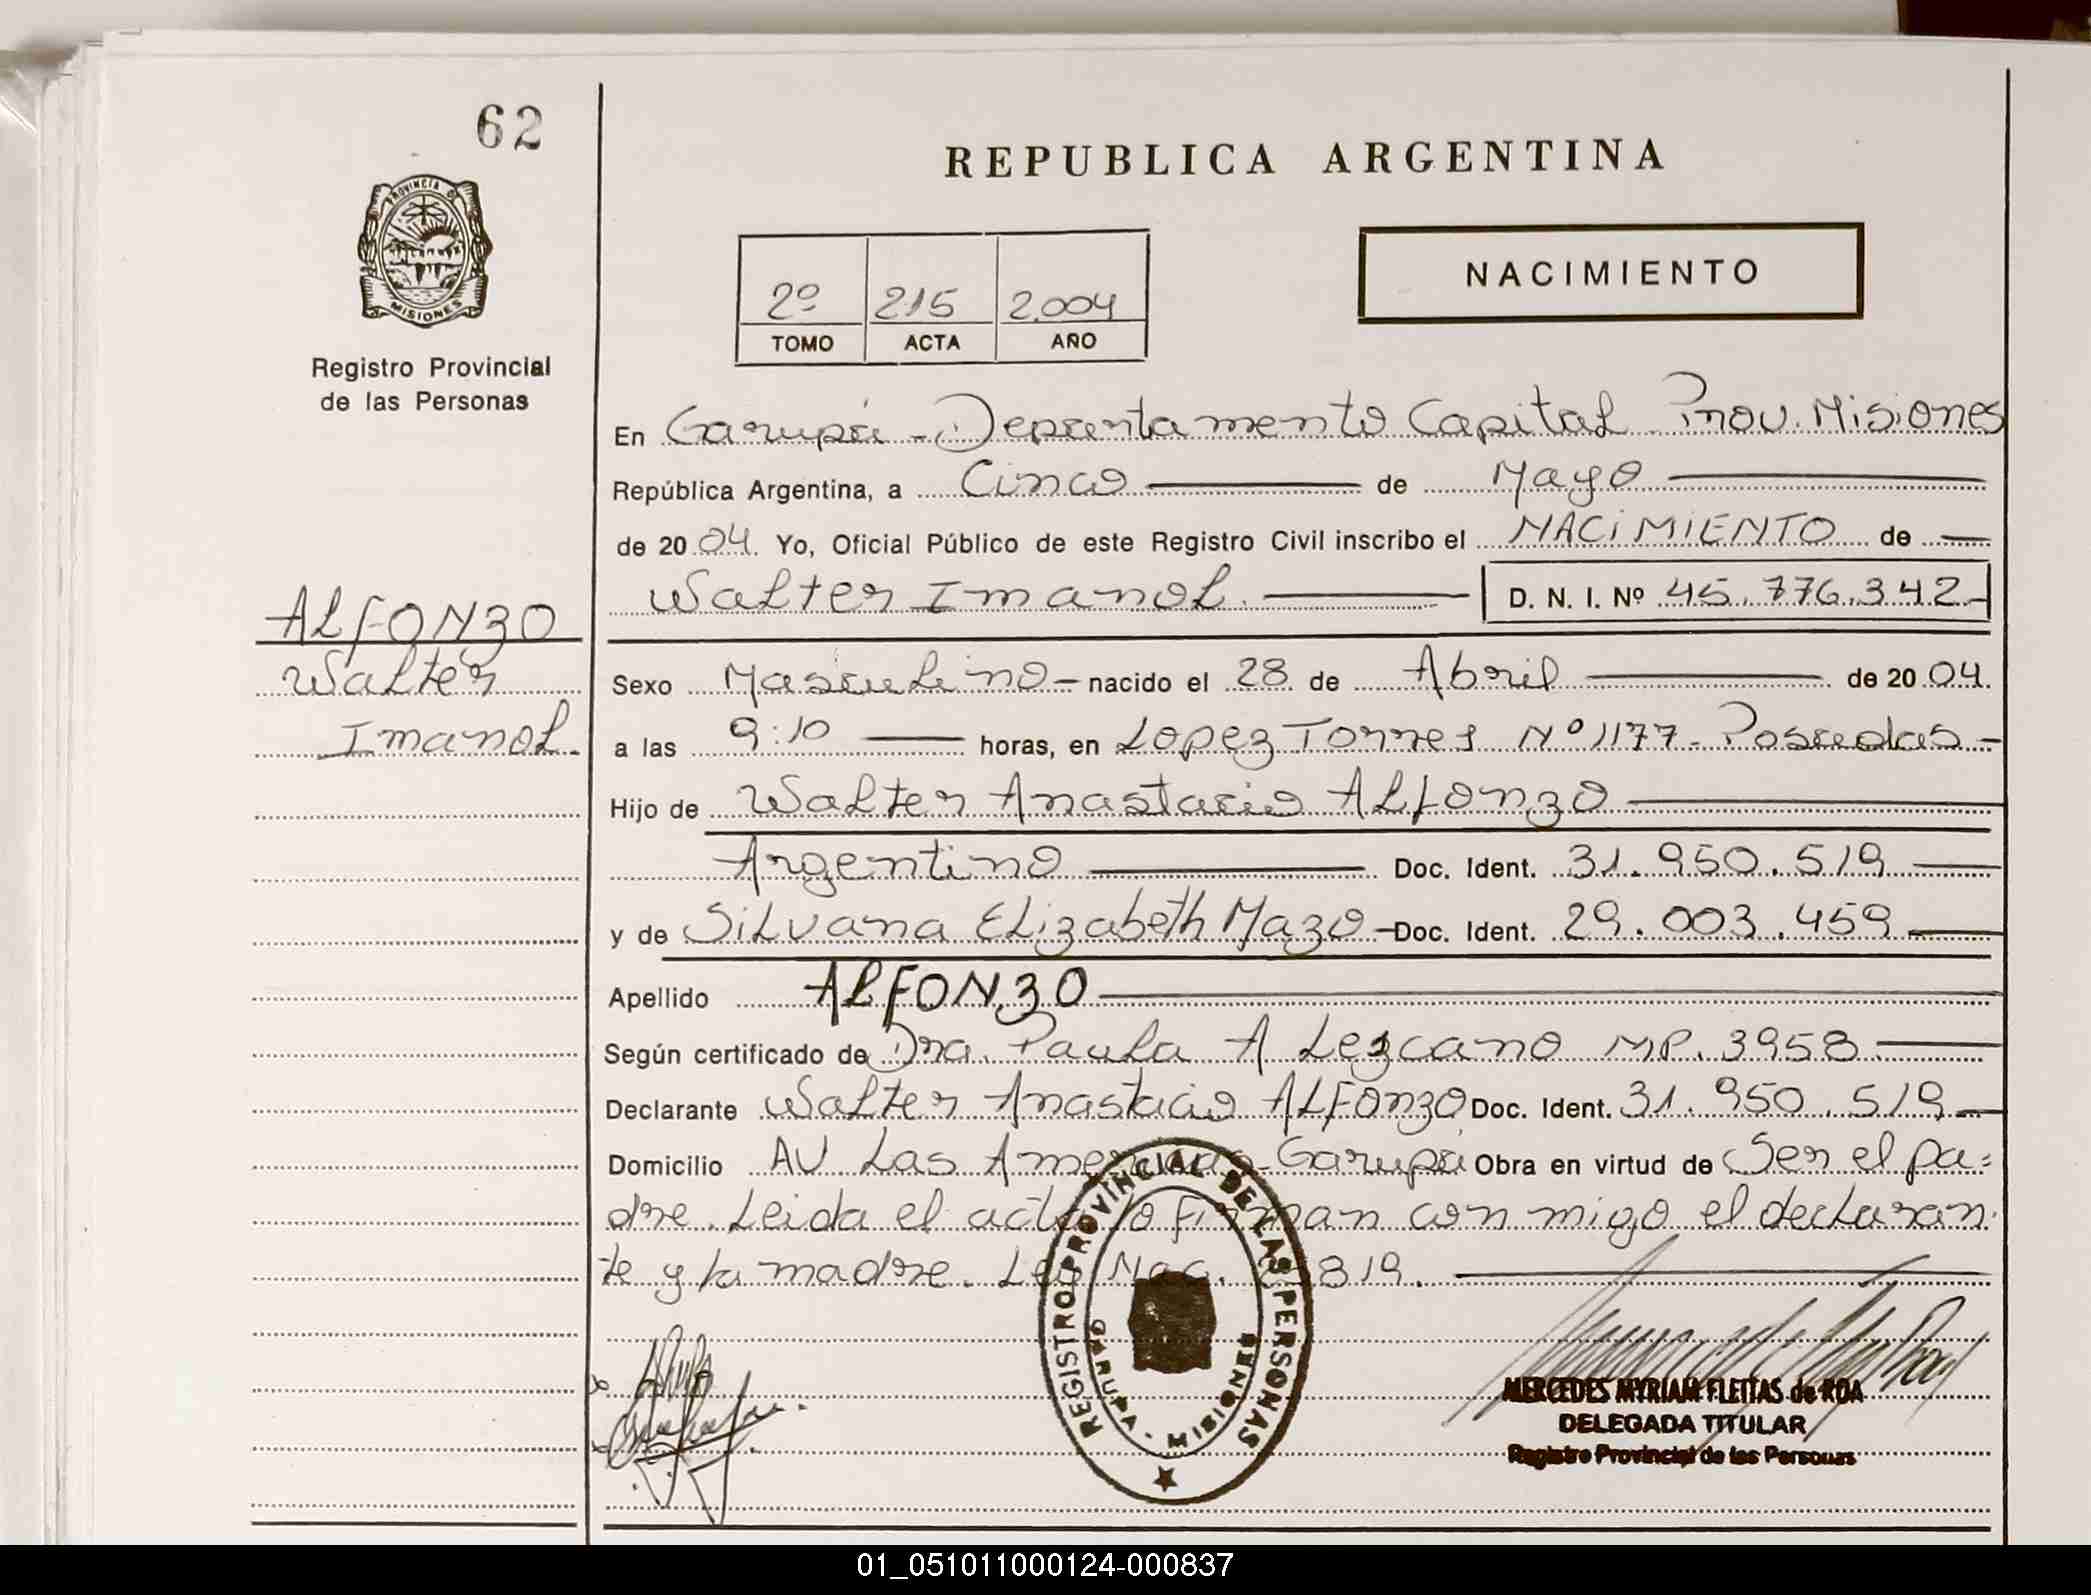 62
REPUBLICA ARGENTINA
PROVINCIA DE
MISIONES
Registro Provincial
de las Personas
2º 215 2.004
TOMO ACTA AÑO
NACIMIENTO
En Garupá - Departamento Capital Prov. Misiones
República Argentina, a Cinco de Mayo
de 2004. Yo, Oficial Público de este Registro Civil inscribo el NACIMIENTO de
Walter Imanol. D. N. I. Nº 45.776.342-
ALFONZO
Walter
Imanol.
Sexo Masculino - nacido el 28 de Abril de 2004.
a las 9:10 horas, en Lopez Torres Nº 1177 - Posadas -
Hijo de Walter Anastacio ALfonzo
Argentino Doc. Ident. 31.950.519
y de Silvana Elizabeth Mazo - Doc. Ident. 29.003.459
Apellido ALFONZO
Según certificado de Dra. Paula A Lezcano MP. 3958
Declarante Walter Anastacio ALFONZO Doc. Ident. 31.950.519
Domicilio AV Las Americas - Garupá Obra en virtud de Ser el pa=
dre. Leida el acta lo firman con migo el declaran-
te y la madre. Ley Nac. 819.
REGISTRO PROVINCIAL DE LAS PERSONAS
GARUPA - MISIONES
MERCEDES MYRIAM FLEITAS de ROA
DELEGADA TITULAR
Registro Provincial de las Personas
01_051011000124-000837